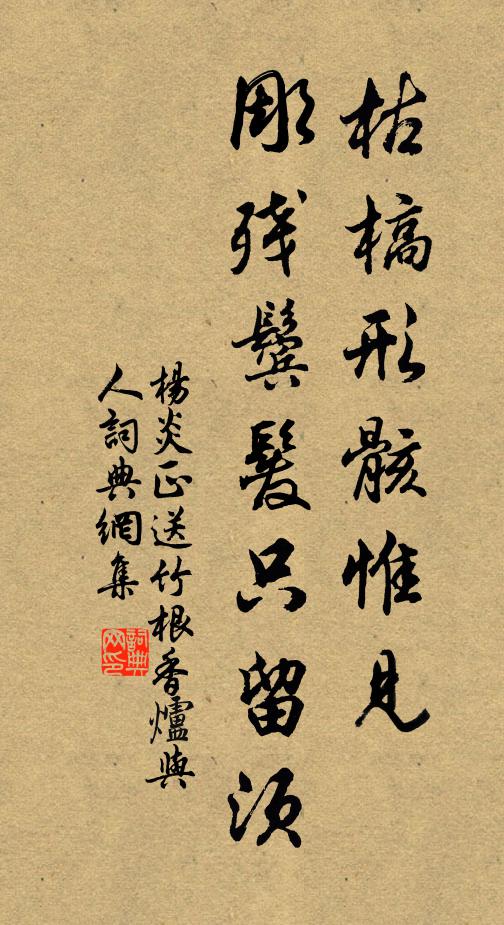 枯槁形骸惟見
彫残鬓髮只留须
楊炎正送竹根香爐與
人詞典網集
詞典网印